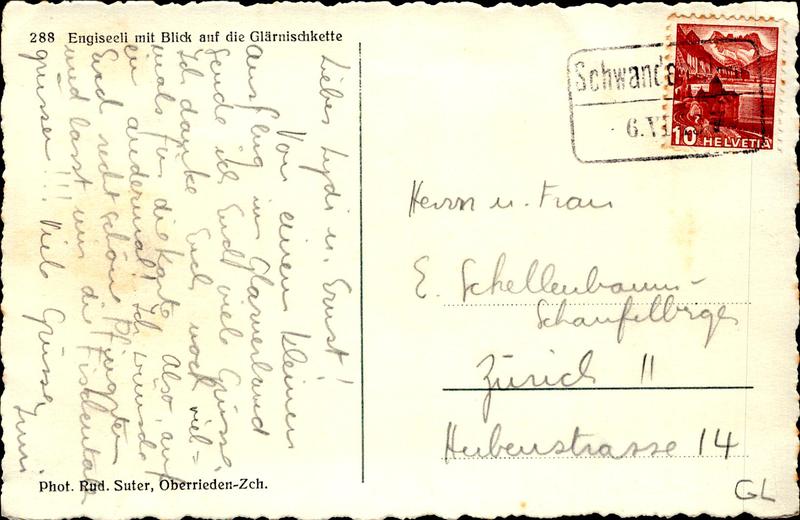 288 Engiseeli mit Blick auf die Glärnischkette
Liebes Lydi u. Ernst!
Von einem kleinen
Ausflug im Glarnerland
sende ich Euch viele Grüsse.
Ich danke Euch noch viel=
mals für die Karte. Also, auf
ein andermal! Ich wünsche
Euch recht schöne Pfingsten
und lasst mir die Fischentaler
grüssen!!! Viele Grüsse
Phot. Rud. Suter, Oberrieden-Zch.
Schwanden
6.VI
10 HELVETIA
Herrn u. Frau
E. Schellenbaum-
Schaufelberger
Zürich 11
Hubenstrasse 14
GL